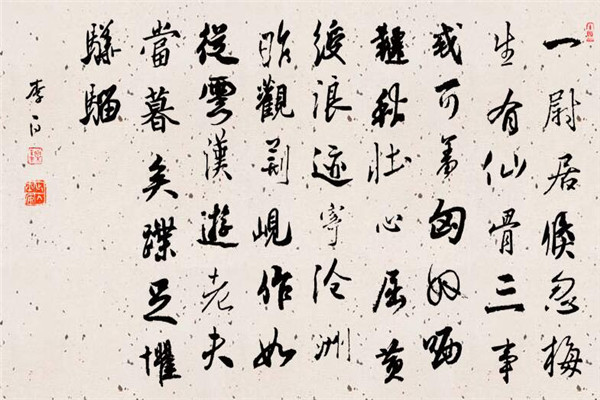 一尉居倏忽梅
生有仙骨三事
或可羞匈奴哂
韆秋壯心屈黄
綬浪迹寄沧洲
昨觀荆峴作如
從雲漢遊老夫
當暮矣蹀足懼
驊騮
李白